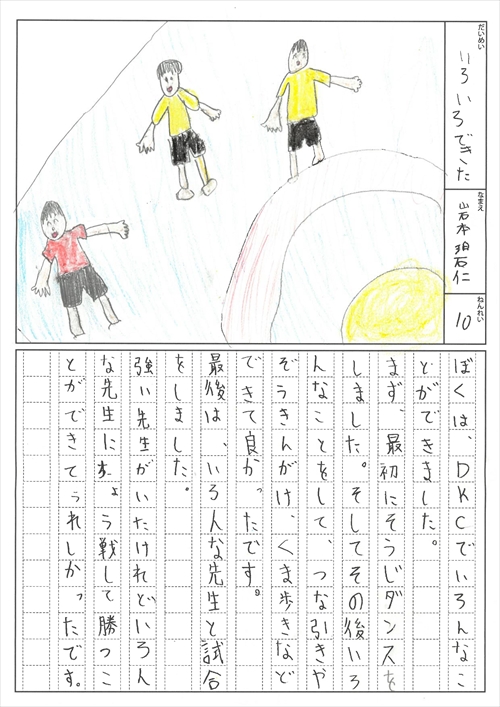 だいめい
いろいろできた
なまえ
岩本 珀仁
ねんれい
10
ぼくは、DKCでいろんなこ
とができました。
まず、最初にそうじダンスを
しました。そしてその後いろ
んなことをして、つな引きや
ぞうきんがけ、くま歩きなど
できて良かったです。
最後は、いろんな先生と試合
をしました。
強い先生がいたけれどいろん
な先生にちょう戦して勝つこ
とができてうれしかったです。